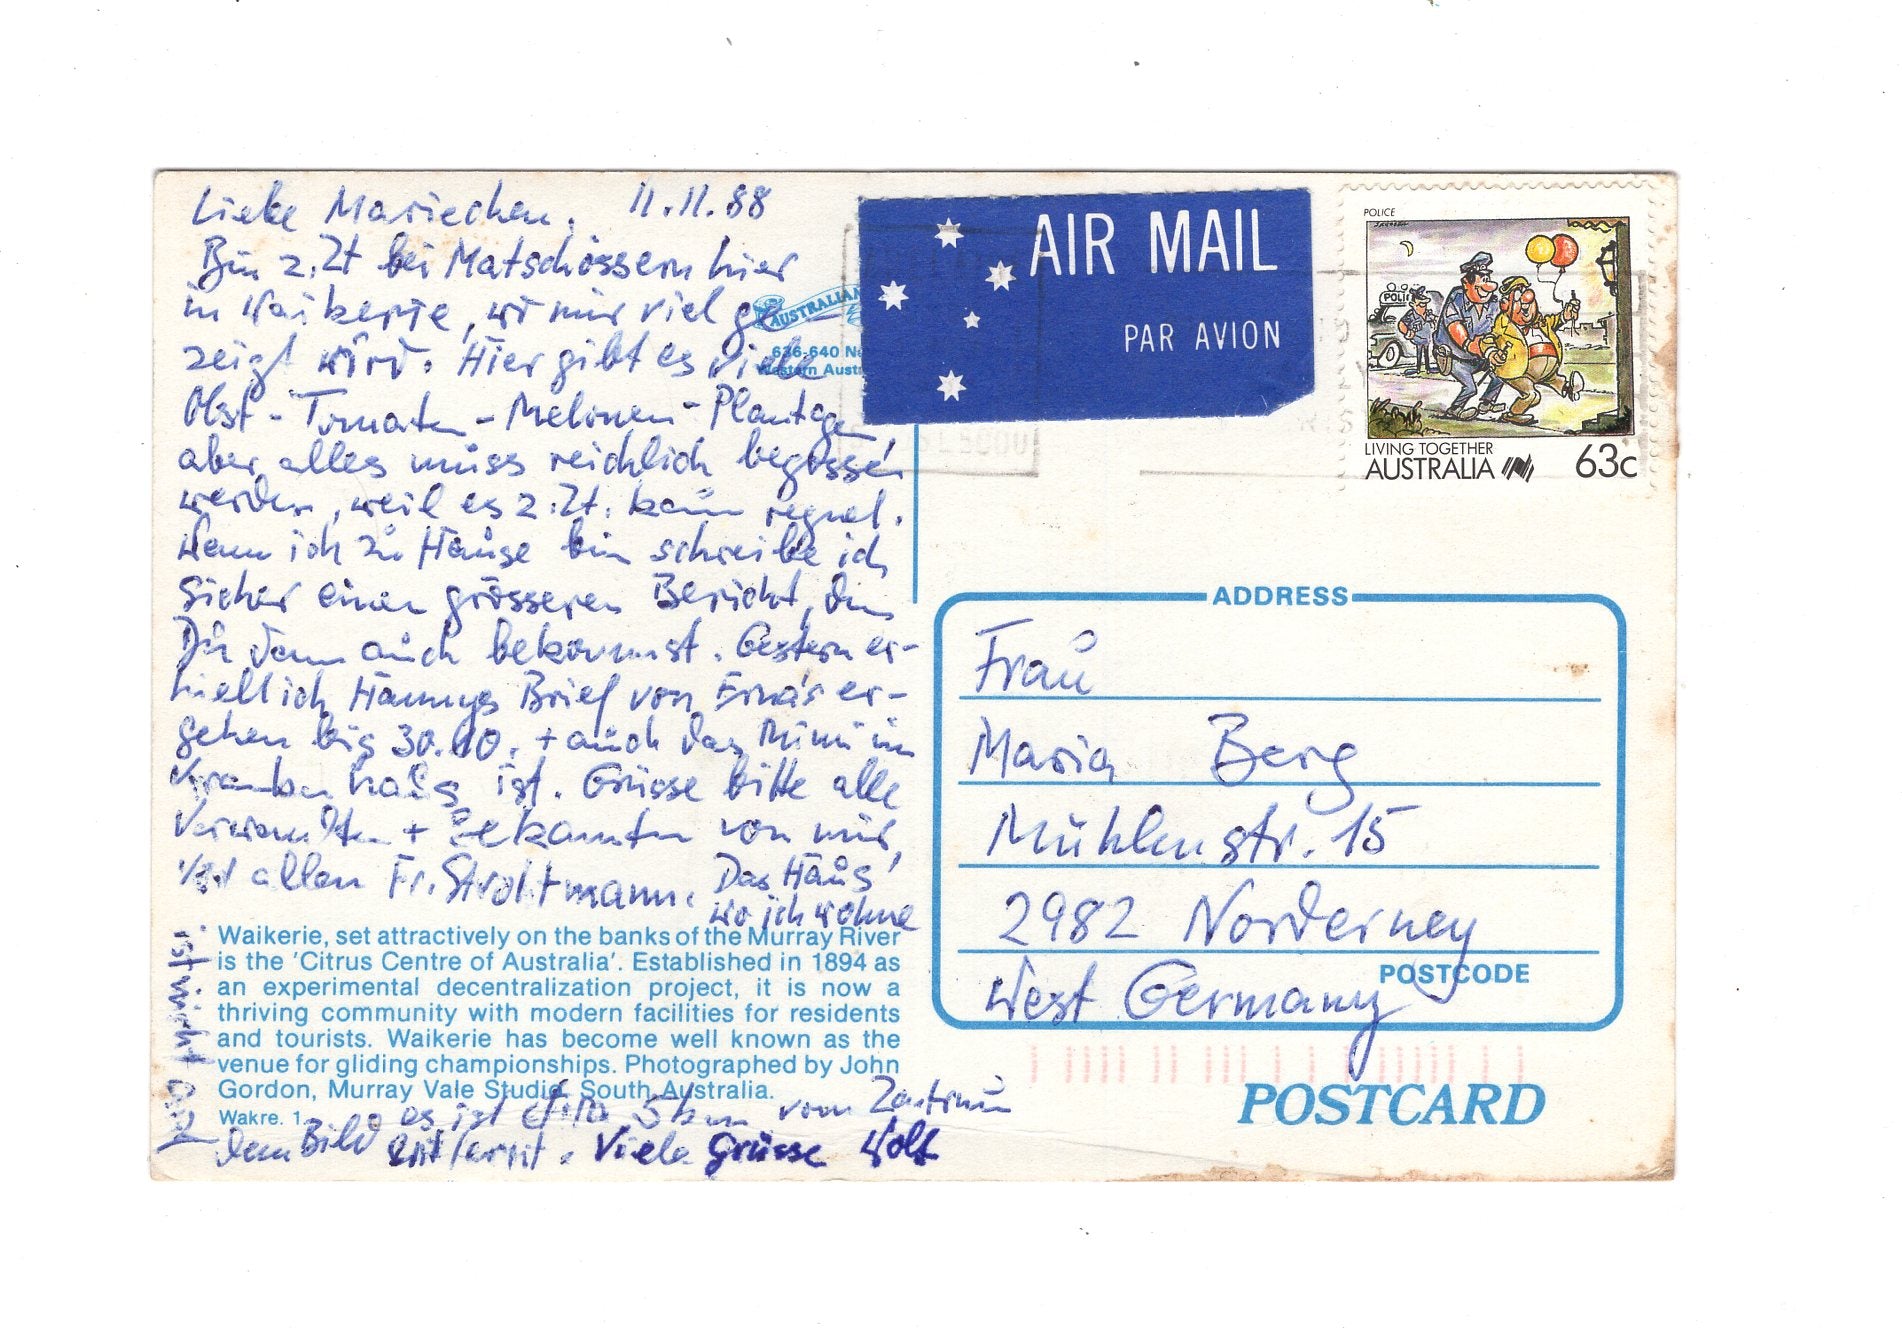 Lieke Mariechen, 11.11.88
Bin z.Zt bei Matschossern hier
in Waikerie, wo mir viel ge
zeigt wird. Hier gibt es viele
Obst-Tomaten-Melonen-Plantagen,
aber alles muss reichlich begossen
werden, weil es z.Zt. kaum regnet.
Wenn ich zu Hause bin schreibe ich
sicher einen grösseren Bericht, den
Du dann auch bekommst. Gestern er-
hielt ich Hannys Brief von Erna's er-
gehen bis 30.10. + auch das Mimi im
Krankenhaus ist. Grüsse bitte alle
Verwandten + Bekannten von mir,
vor allen Fr. Stroltmann. Das Haus
wo ich wohne
ist nicht auf
dem Bild
es ist etwa 5 km vom Zentrum
entfernt. Viele Grüsse Wolf
Waikerie, set attractively on the banks of the Murray River
is the 'Citrus Centre of Australia'. Established in 1894 as
an experimental decentralization project, it is now a
thriving community with modern facilities for residents
and tourists. Waikerie has become well known as the
venue for gliding championships. Photographed by John
Gordon, Murray Vale Studio, South Australia.
Wakre. 1.
AUSTRALIAN
636-640
Western
AIR MAIL
PAR AVION
POLICE
LIVING TOGETHER
AUSTRALIA 63c
ADDRESS
Frau
Maria Berg
Mühlenstr. 15
2982 Norderney
POSTCODE
West Germany
POSTCARD